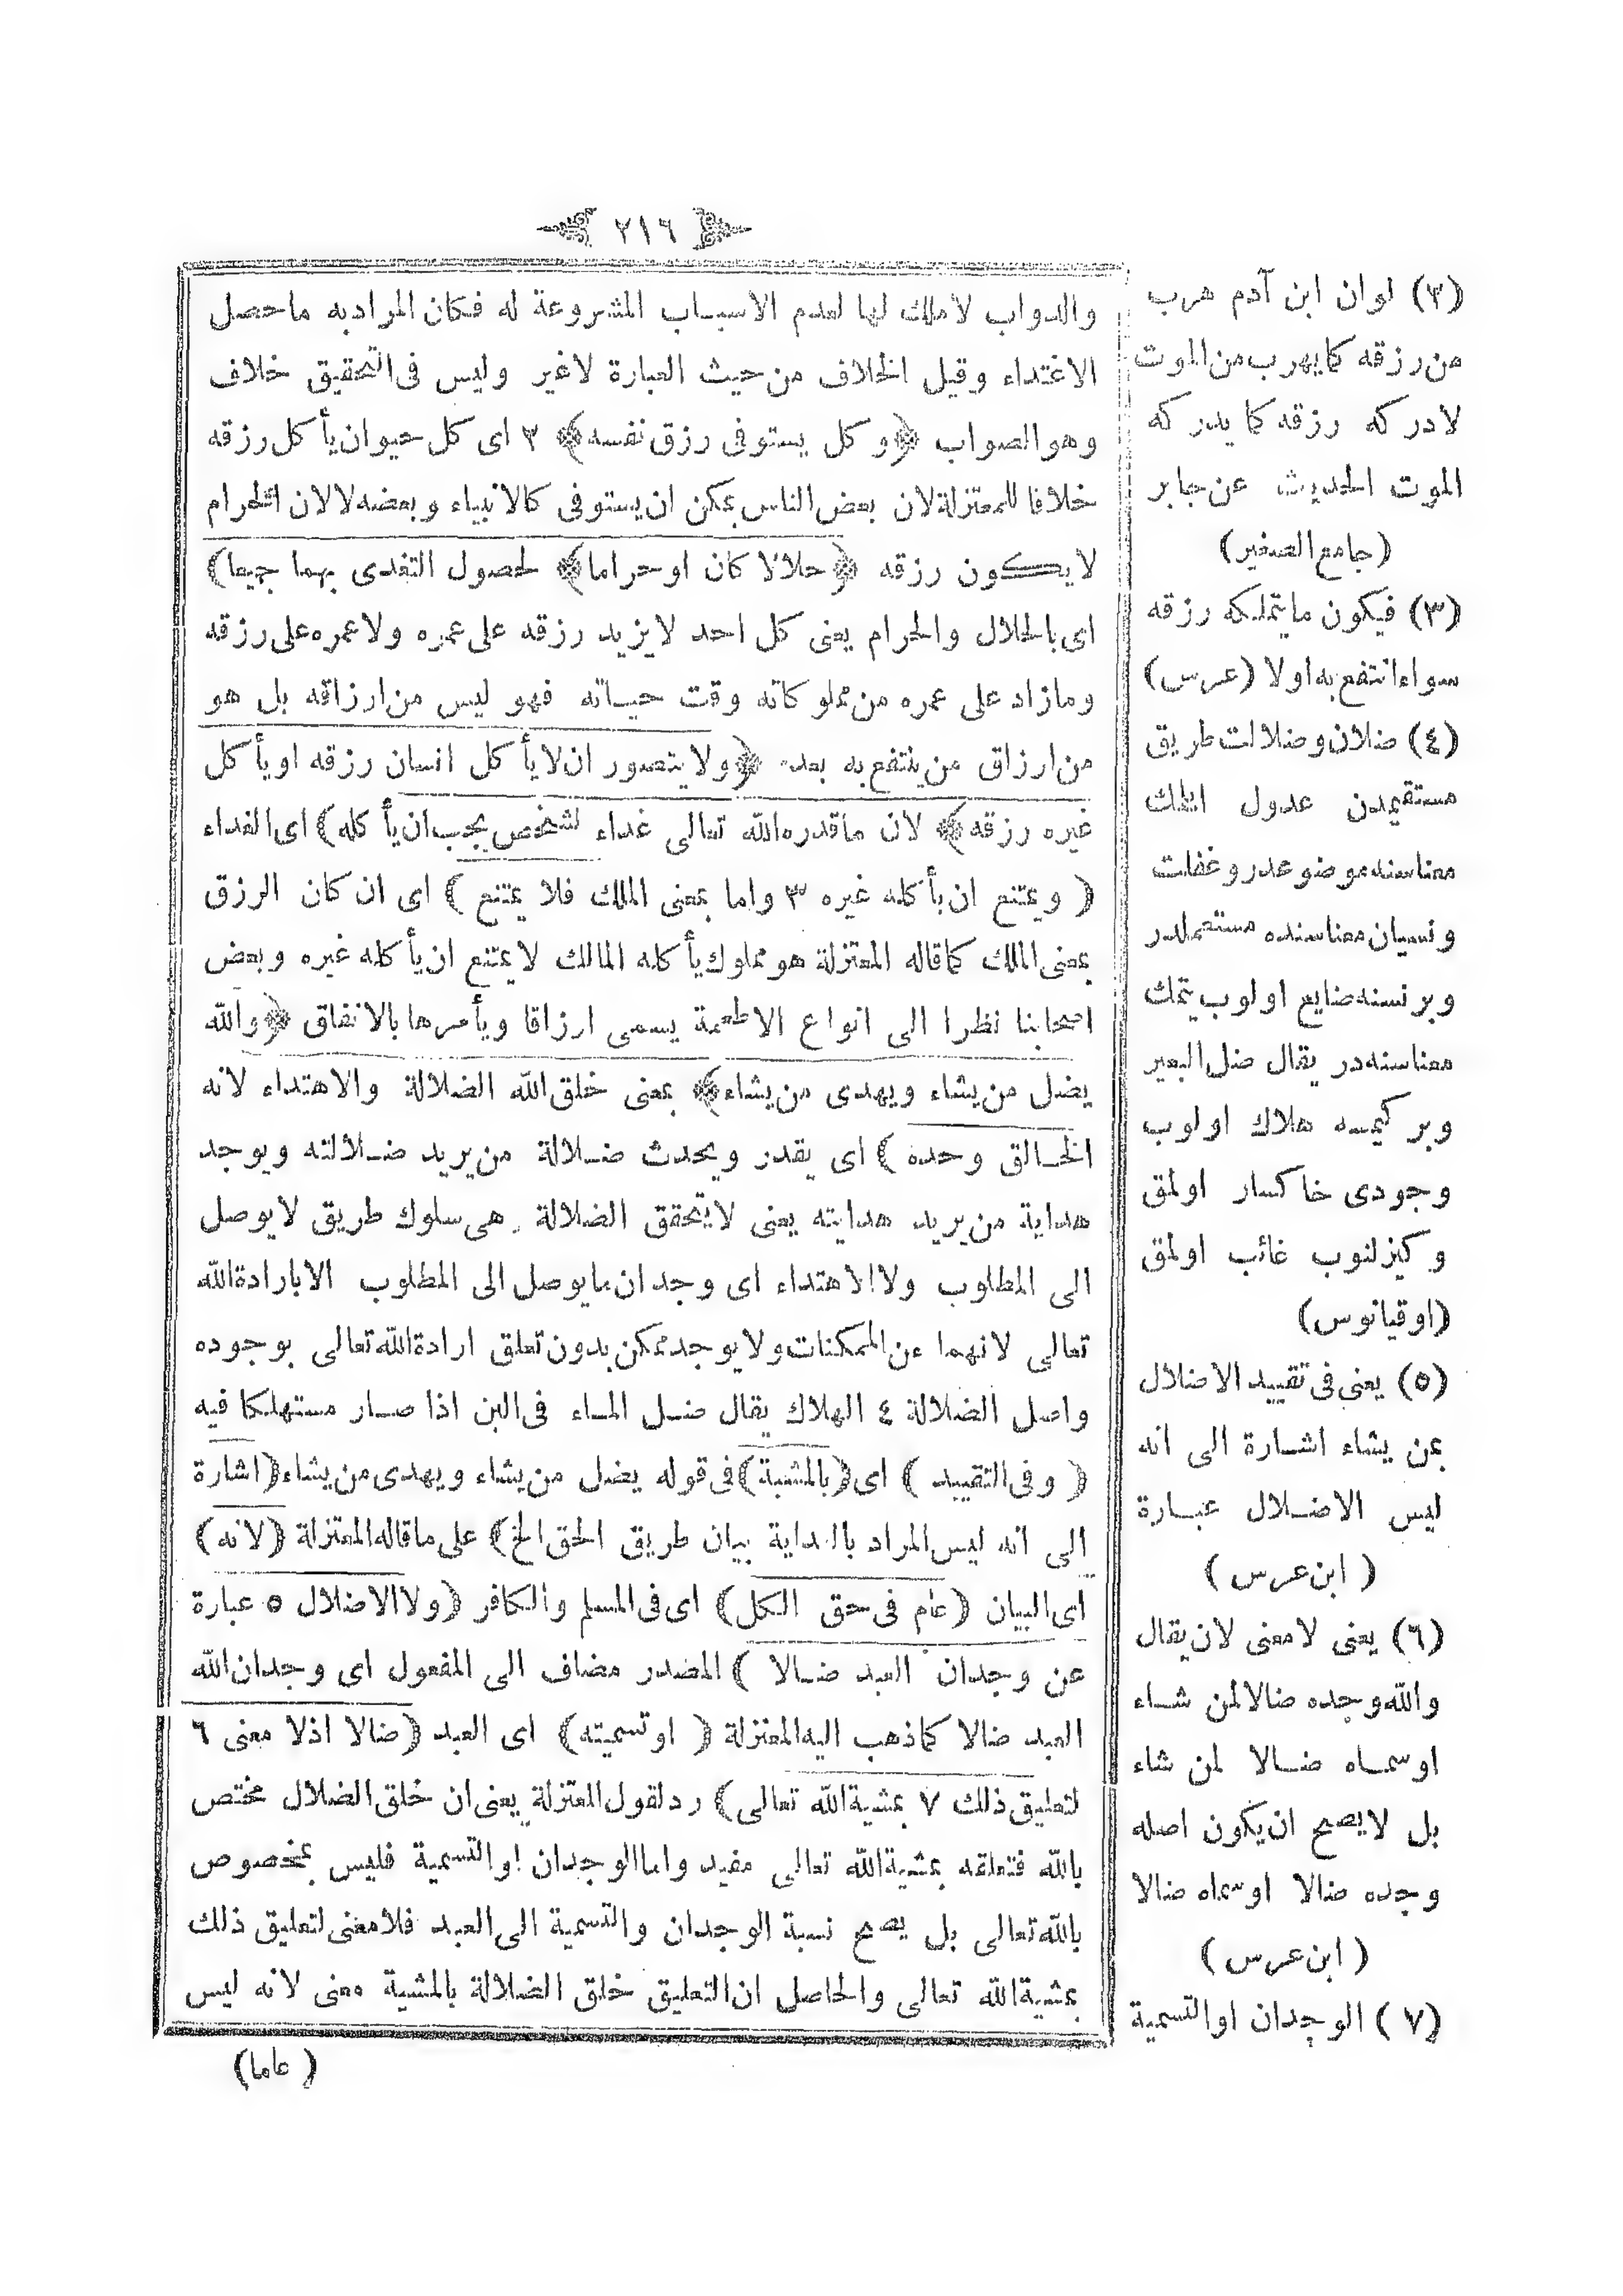 ٢١٦
والدواب لاملك لها لعدم الاسباب المشروعة له فكان المرادبه ماحصل
الاغتداء وقيل الخلاف من حيث العبارة لاغير وليس فى التحقيق خلاف
وهو الصواب ﴿و كل يستوفى رزق نفسه﴾ ٣ اى كل حيوان يأكل رزقه
خلافا للمعتزلة لان بعض الناس يمكن ان يستوفى كالانبياء وبعضه لا لان الحرام
لايكون رزقه ﴿حلالا كان اوحراما﴾ لحصول التغدى بهما جميعا)
اى بالحلال والحرام يعنى كل احد لايزيد رزقه على عمره ولاعمره على رزقه
ومازاد على عمره من مملوكاته وقت حياته فهو ليس من ارزاقه بل هو
من ارزاق من ينتفع به بعده ﴿ولا يتصور ان لايأكل انسان رزقه اويأكل
غيره رزقه﴾ لان ماقدره الله تعالى غداء لشخص يجب ان يأكله) اى الغداء
( ويمتنع ان يأكله غيره ٣ واما بمعنى الملك فلا يمتنع ) اى ان كان الرزق
بمعنى الملك كماقاله المعتزلة هو مملوك يأكله المالك لايمتنع ان يأكله غيره وبعض
اصحابنا نظرا الى انواع الاطعمة يسمى ارزاقا ويأمرها بالانفاق ﴿والله
يضل من يشاء ويهدى من يشاء﴾ بمعنى خلق الله الضلالة والاهتداء لانه
الخالق وحده ) اى يقدر ويحدث ضلالة من يريد ضلالته ويوجد
هداية من يريد هدايته يعنى لايتحقق الضلالة هى سلوك طريق لايوصل
الى المطلوب ولا الاهتداء اى وجدان مايوصل الى المطلوب الا بارادة الله
تعالى لانهما من الممكنات ولا يوجد ممكن بدون تعلق ارادة الله تعالى بوجوده
واصل الضلالة ٤ الهلاك يقال ضل الماء فى البن اذا صار مستهلكا فيه
( وفى التقييد ) اى (بالمشية) فى قوله يضل من يشاء ويهدى من يشاء (اشارة
الى انه ليس المراد بالهداية بيان طريق الحق الخ) على ماقاله المعتزلة (لانه)
اى البيان (عام فى حق الكل) اى فى المسلم والكافر (ولا الاضلال ٥ عبارة
عن وجدان العبد ضالا ) المصدر مضاف الى المفعول اى وجدان الله
العبد ضالا كماذهب اليه المعتزلة ( اوتسميته) اى العبد (ضالا اذلا معنى ٦
لتعليق ذلك ٧ بمشية الله تعالى) رد لقول المعتزلة يعنى ان خلق الضلال مختص
بالله فتعلقه بمشية الله تعالى مفيد واما الوجدان اوالتسمية فليس بمخصوص
بالله تعالى بل يصح نسبة الوجدان والتسمية الى العبد فلامعنى لتعليق ذلك
بمشية الله تعالى والحاصل ان التعليق خلق الضلالة بالمشية معنى لانه ليس
( عاما)
(٣) لوان ابن آدم هرب
من رزقه كمايهرب من الموت
لادركه رزقه كما يدركه
الموت الحديث عن جابر
(جامع الصغير)
(٣) فيكون مايتملكه رزقه
سواء انتفع به اولا (عرس)
(٤) ضلان وضلالت طريق
مستقيمدن عدول ايتمك
معناسنه موضوعدر وغفلت
ونسيان معناسنده مستعملدر
وبر نسنه ضايع اولوب يتمك
معناسنه در يقال ضل البعير
وبر كيمسه هلاك اولوب
وجودى خاكسار اولمق
وكيزلنوب غائب اولمق
(اوقيانوس)
(٥) يعنى فى تقييد الاضلال
بمن يشاء اشارة الى انه
ليس الاضلال عبارة
( ابن عرس )
(٦) يعنى لامعنى لان يقال
والله وجده ضالا لمن شاء
اوسماه ضالا لمن شاء
بل لايصح ان يكون اصله
وجده ضالا اوسماه ضالا
( ابن عرس )
(٧) الوجدان اوالتسمية